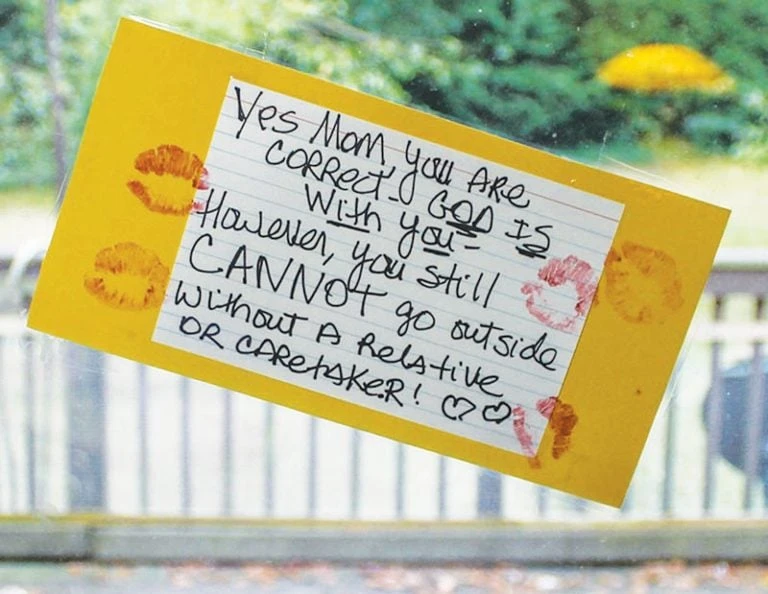 Yes Mom you ARE
CORRECT - GOD IS
With you -
However, you still
CANNOT go outside
without A Relative
OR CAREtAKER! ♡♡